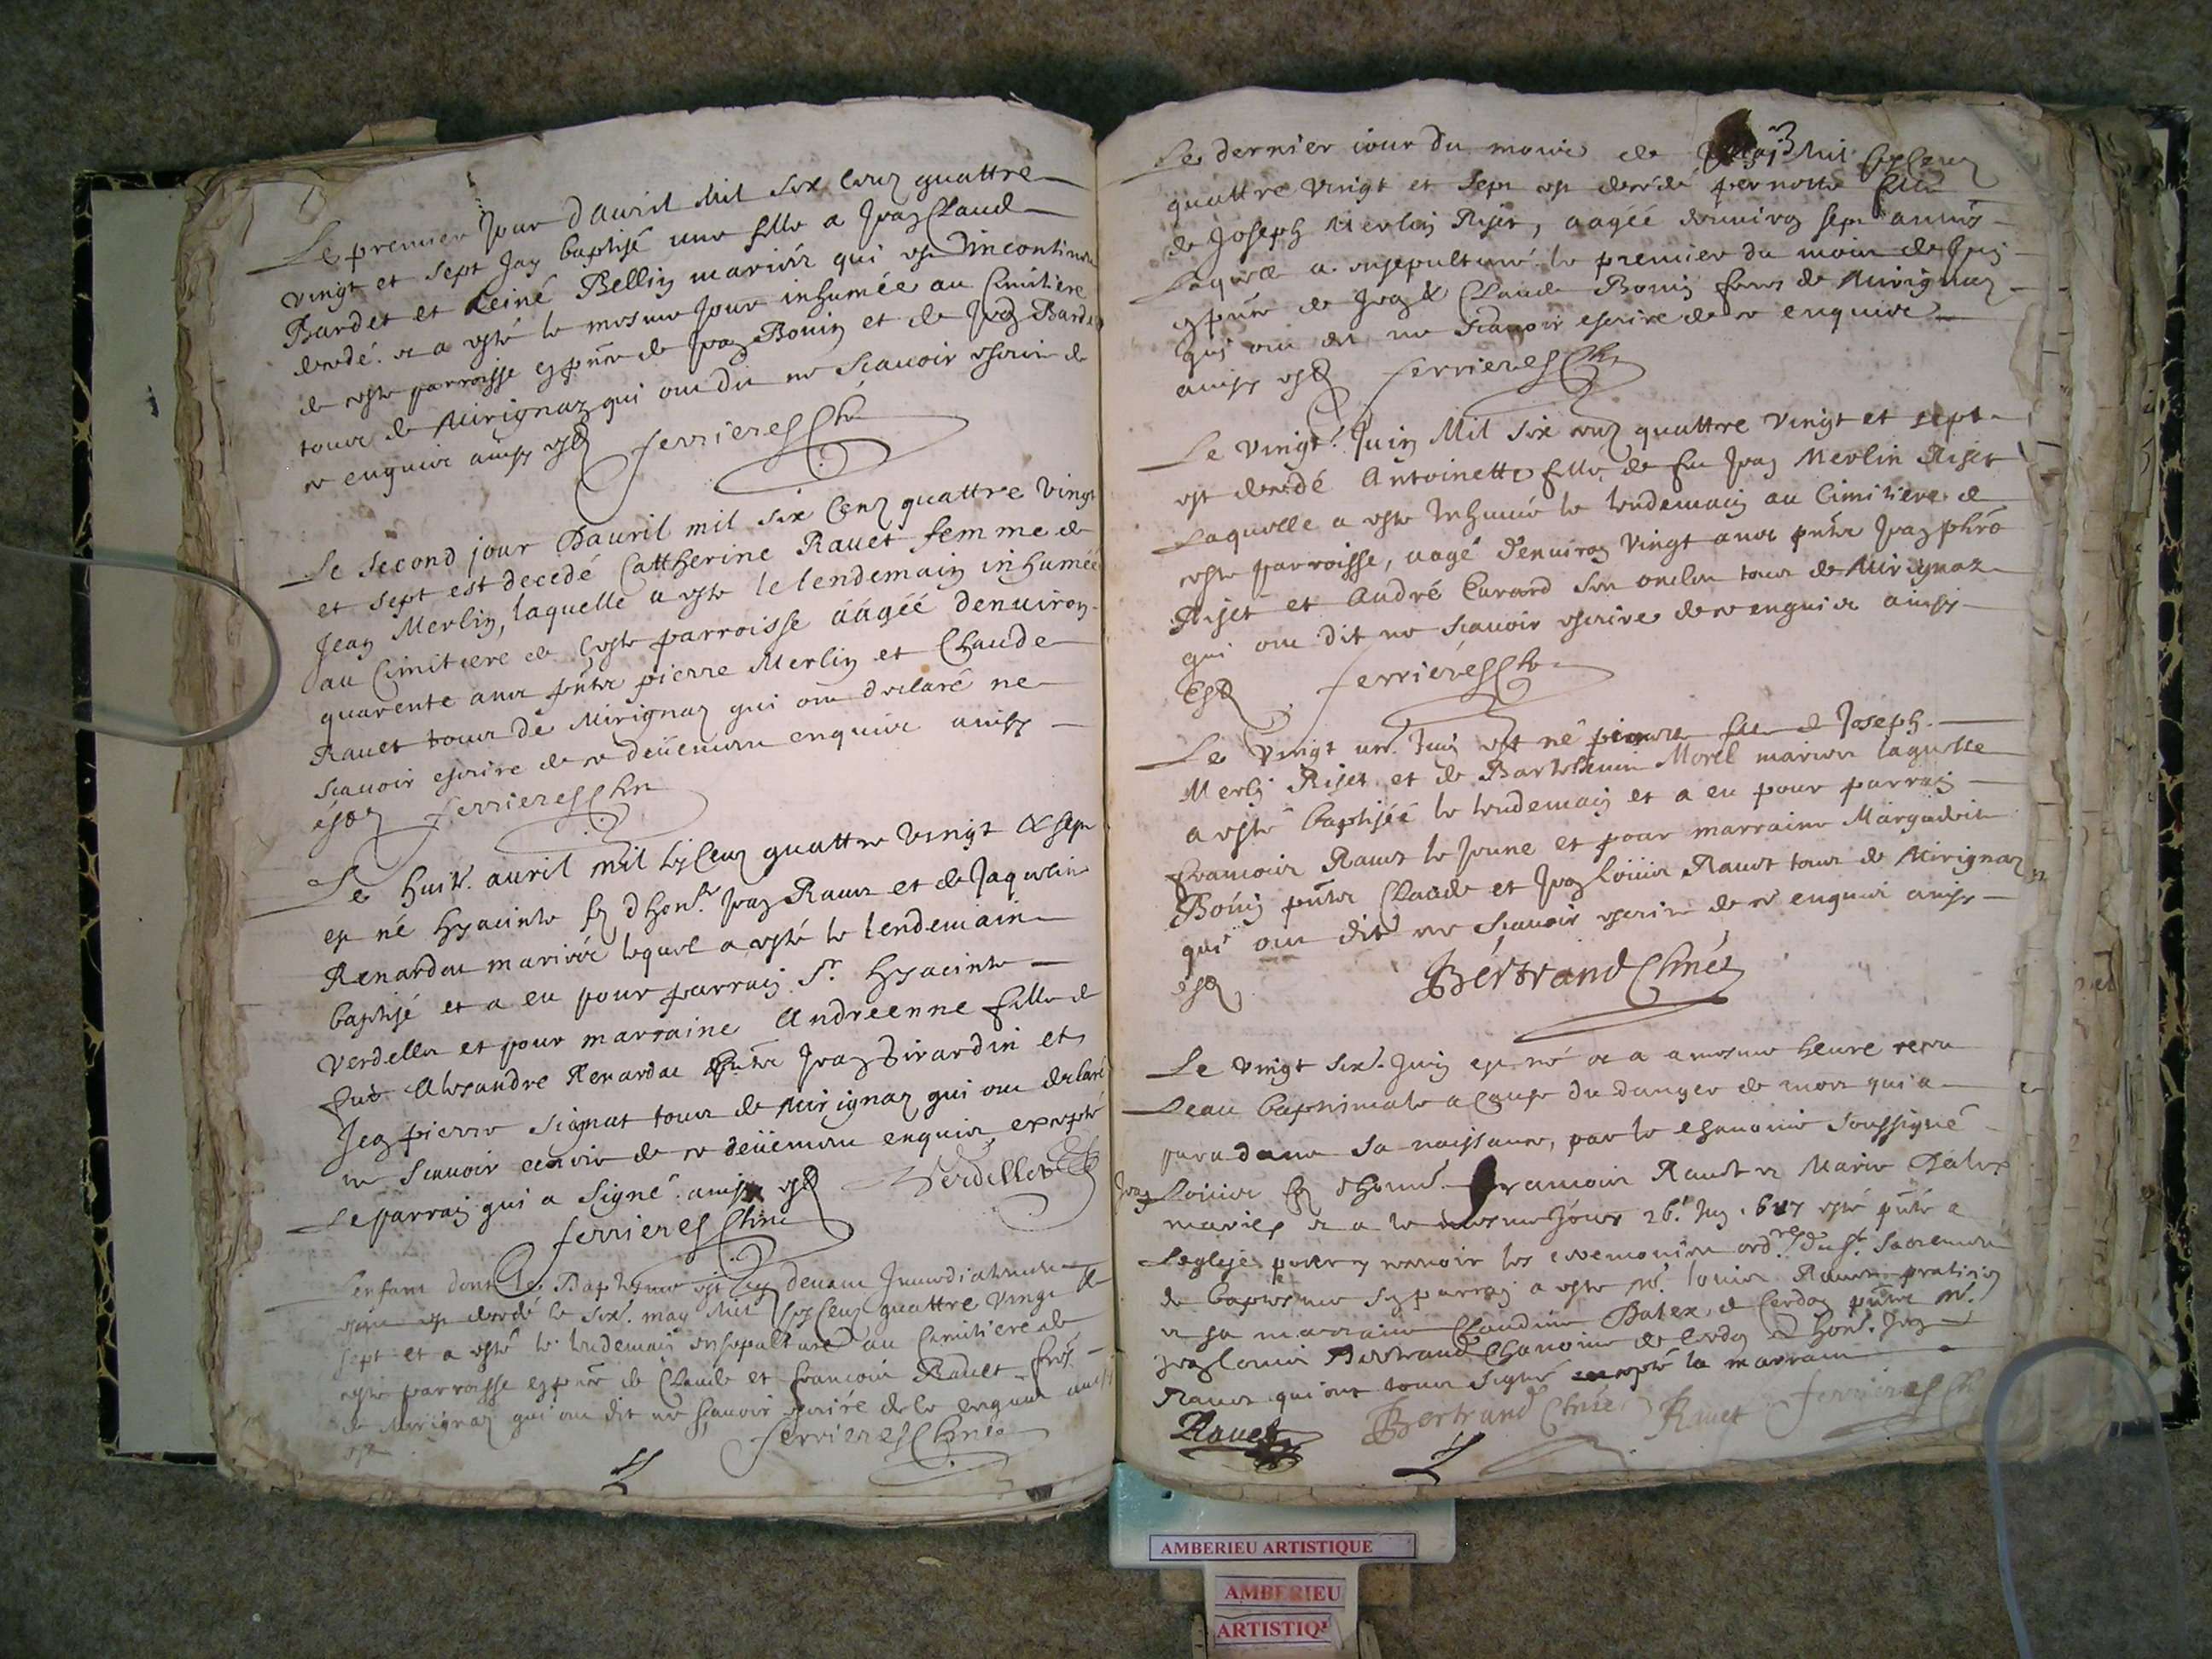 Le premier Jour dAuvril Mil six cens quattre
vingt et sept Jay baptisé une fille a Jean Claud
Bardet et Reiné Bellin mariéz qui est incontinent
decedé et a esté le mesme Jour inhumée au Cimitiere
de ceste parroisse en pnce de Jean Bouin et de Jean Bardet
tous de Mirignaz qui ont dit ne scauoir escrire de
ce enquis ainsy est ferrieres Chne
Le second jour Dauril mil six Cens quattre vingt
et sept est decedé Cattherine Rauet femme de
Jean Merlin, laquelle a este le lendemain inhumée
au Cimitiere de ceste parroisse aagéé denuiron
quarente ans pnts pierre Merlin et Claude
Rauet tous de Mirignaz qui ont declaré ne
scauoir escrire de ce deüement enquis ainsy
est ferrieres Chne
Le huit. auril mil six Cens quattre vingt & sept
est né hyacinte fz dhon. Jean Rauet et de Jaqueline
Renardat mariéz lequel a esté le lendemain
baptisé et a eu pour parrain Sr hyacinte
Verdellet et pour marraine Andréenne fille de
feu Alexandre Renardat pnts Jean Girardin et
Jean pierre Signat tous de Mirignaz qui ont declaré
ne scauoir escrire de ce deüement enquis excepté
Le parrain qui a Signé. ainsy est Verdellet
ferrieres Chne
Lenfant dont le Baptesme est cy deuant Immediatement
est decedé le six. may Mil six Cens quattre vingt &
sept et a esté le lendemain ensepulturé au Cimitiere de
ceste parroisse en pnce de Claude et francois Rauet freres
de Mirignaz qui ont dit ne scauoir escrire de ce enquis ainsy
est ferrieres Chne
Le dernier iour du mois de May Mil six Cens
quattre vingt et sept est decedé pernette fille
de Joseph Merlin Riset, aagéé denuiron sept années
Laquelle a ensepulturé le premier du mois de Juin
en pnce de Jean & Claude Bouin freres de Mirignaz
qui ont dit ne scauoir escrire de ce enquis
ainsy est ferrieres Chne
Le vingt. Juin Mil six cens quattre vingt et sept
est decedé Antoinette fille de feu Jean Merlin Riset
Laquelle a este Inhumé le lendemain au Cimitiere de
ceste parroisse, aagé denuiron vingt ans pnts Jean
Riset et André Curard son oncle tous de Mirignaz
qui ont dit ne scauoir escrire de ce enquis ainsy
Est ferrieres Chne
Le vingt un. Juin est né pierre fille de Joseph
Merlin Riset et de Morel mariez laquelle
a esté baptiséé le lendemain et a eu pour parrain
francois Rauet le Jeune et pour marraine Marguerite
Bouin pnts Claude et Jean louis Rauet tous de Mirignaz
qui ont dit ne scauoir escrire de ce enquis ainsy
est Bertrand Chne
Le vingt six. Juin est né et a a mesme heure receu
Leau baptismale a Cause du danger de mort qui a
paru dans sa naissance, par le chanoine soussigné
Jean Louis fz dhonn. francois Rauet et Marie Dalex
mariés et a le mesme Jour 26. Juin 1687 esté pnté a
Leglise pour y receuoir les ceremonies ordres du St. Sacrement
de baptesme son parrain a este Mr. louis Rauet praticien
et sa marraine Claudine Balex de Cerdon pnts Mr.
Jean louis Bertrand Chanoine de Cerdon et hon. Jean
Rauet qui ont tous signé excepté la marraine
Rauet Bertrand Chne Rauet ferrieres Chne
AMBERIEU ARTISTIQUE
AMBERIEU
ARTISTIQU